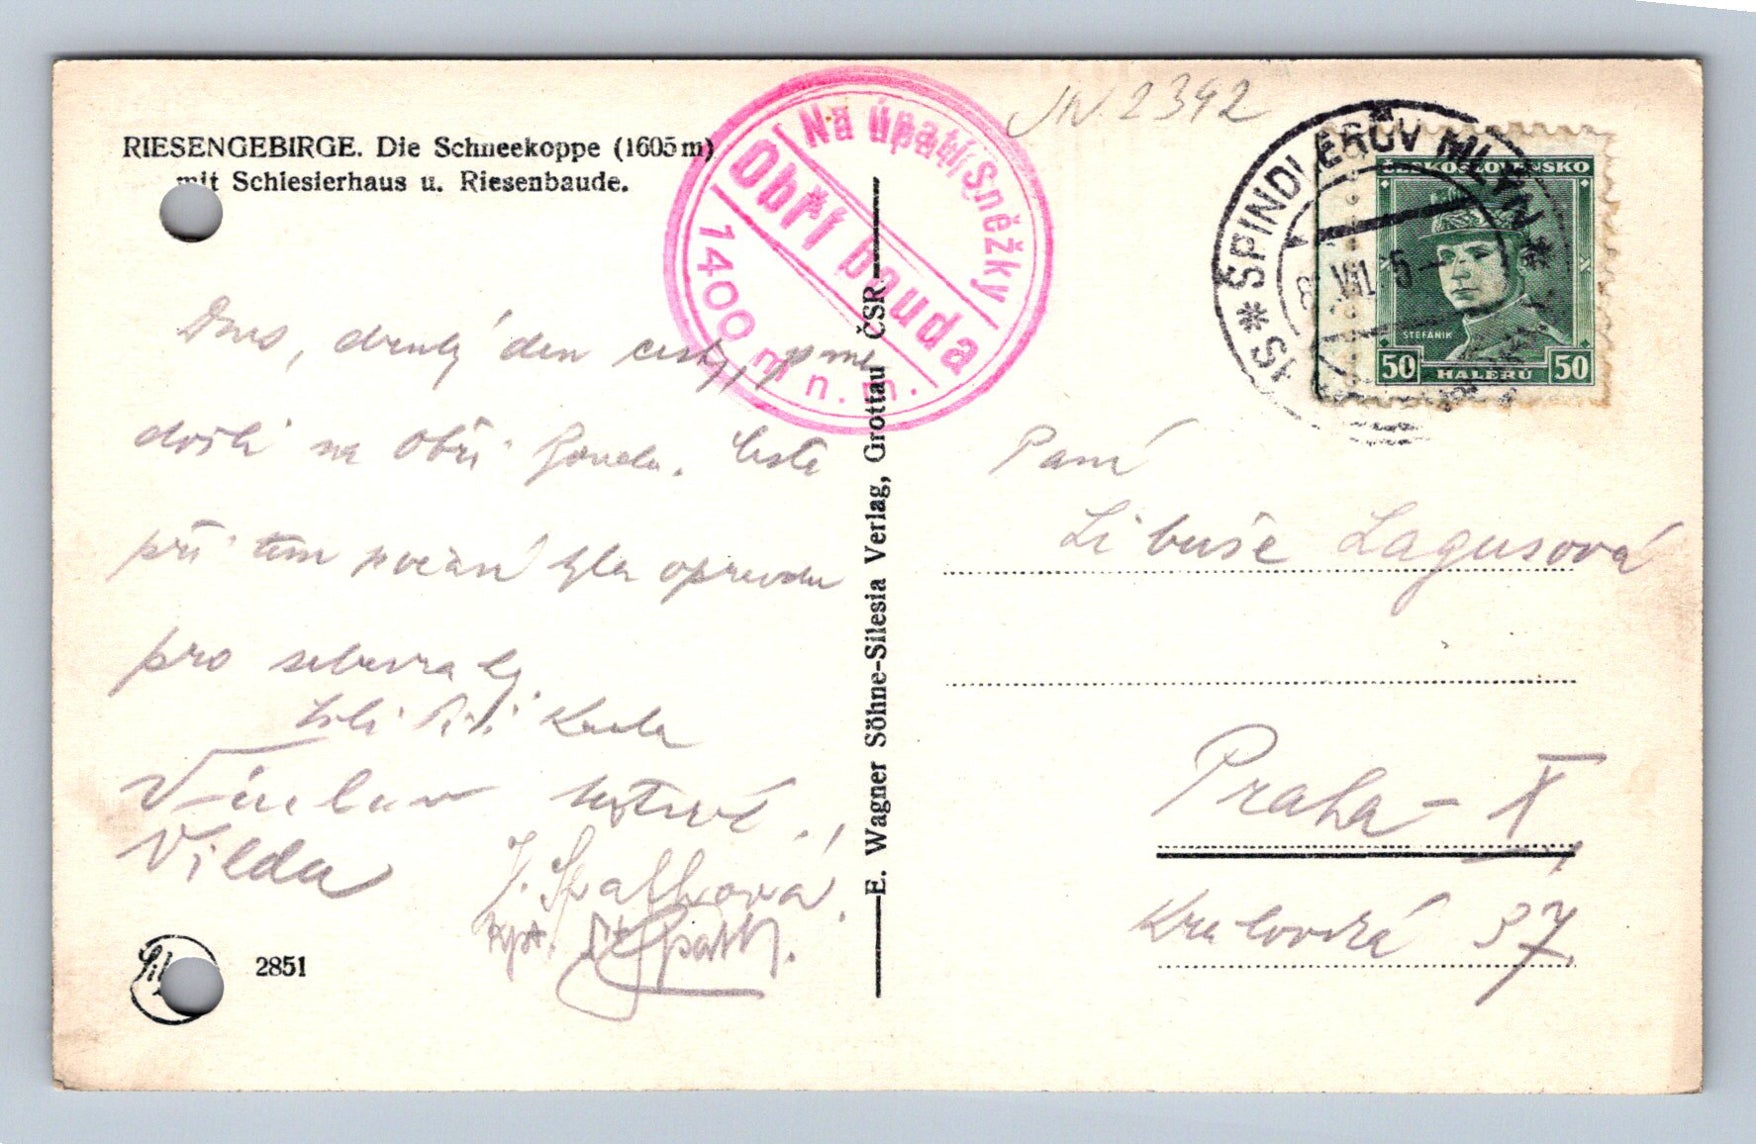 RIESENGEBIRGE. Die Schneekoppe (1605 m)
mit Schlesierhaus u. Riesenbaude.
Na úpatí Sněžky
Obří bouda
1400 m n. m.
JN. 2392
* SPINDLERŮV MLÝN *
ČESKOSLOVENSKO
ŠTEFÁNIK
50 HALÉŘŮ 50
Dnes, druhý den cesty, jsme
došli na Obří boudu. Cesta
při tom počasí byla opravdu
pro
Václav
Vilda
J. Spathová.
kpt. Spath.
2851
E. Wagner Söhne-Silesia Verlag, Grottau ČSR
Paní
Libuše Lagusová
Praha - X
Královská 37.